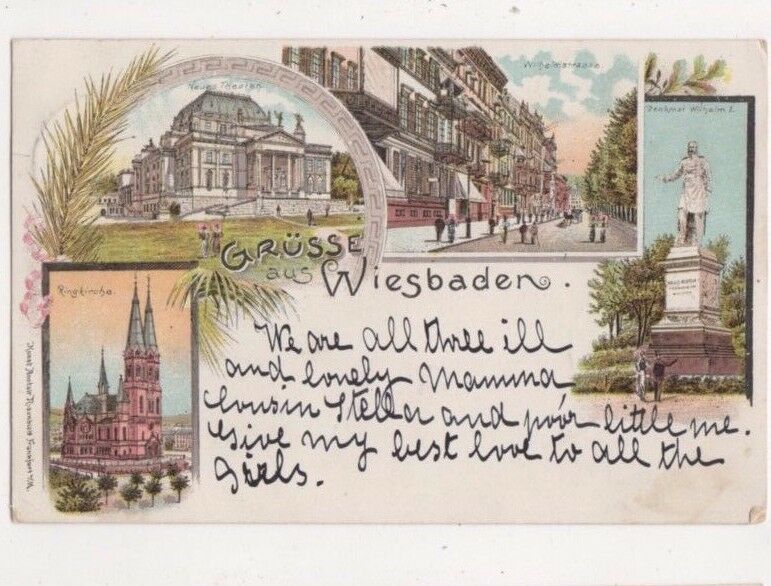 Neues Theater.
Wilhelmstrasse.
Denkmal Wilhelm I.
GRÜSSE
aus Wiesbaden.
Ringkirche.
We are all three ill
and lonely Mamma
Cousin Stella and poor little me.
Give my best love to all the
Girls.